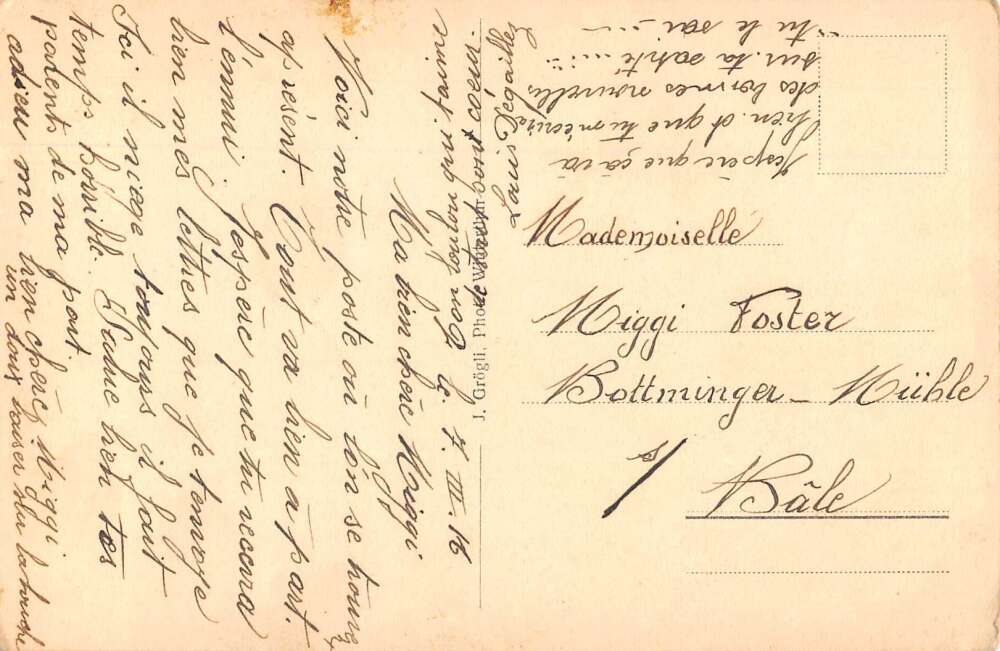 le 7. III. 16
Ma bien chère Miggi
Voici notre poste où l'on se trouve
à présent. Tout va bien à part
l'ennui. J'espère que tu recevra
bien mes lettres que je t'envoye
Ici il neige toujours il fait
temps horrible. Salue bien tes
parents de ma part.
adieu ma bien chère Miggi
un doux baiser sur la bouche
qui t'aime
Louis
J'espère que ça va
bien et que tu m'écrira
des bonnes nouvelles
sur ta santé .....
tu le sai .....
J. Grögli, Phot.
Mademoiselle
Miggi Foster
Bottminger - Mühle
s/ Bâle